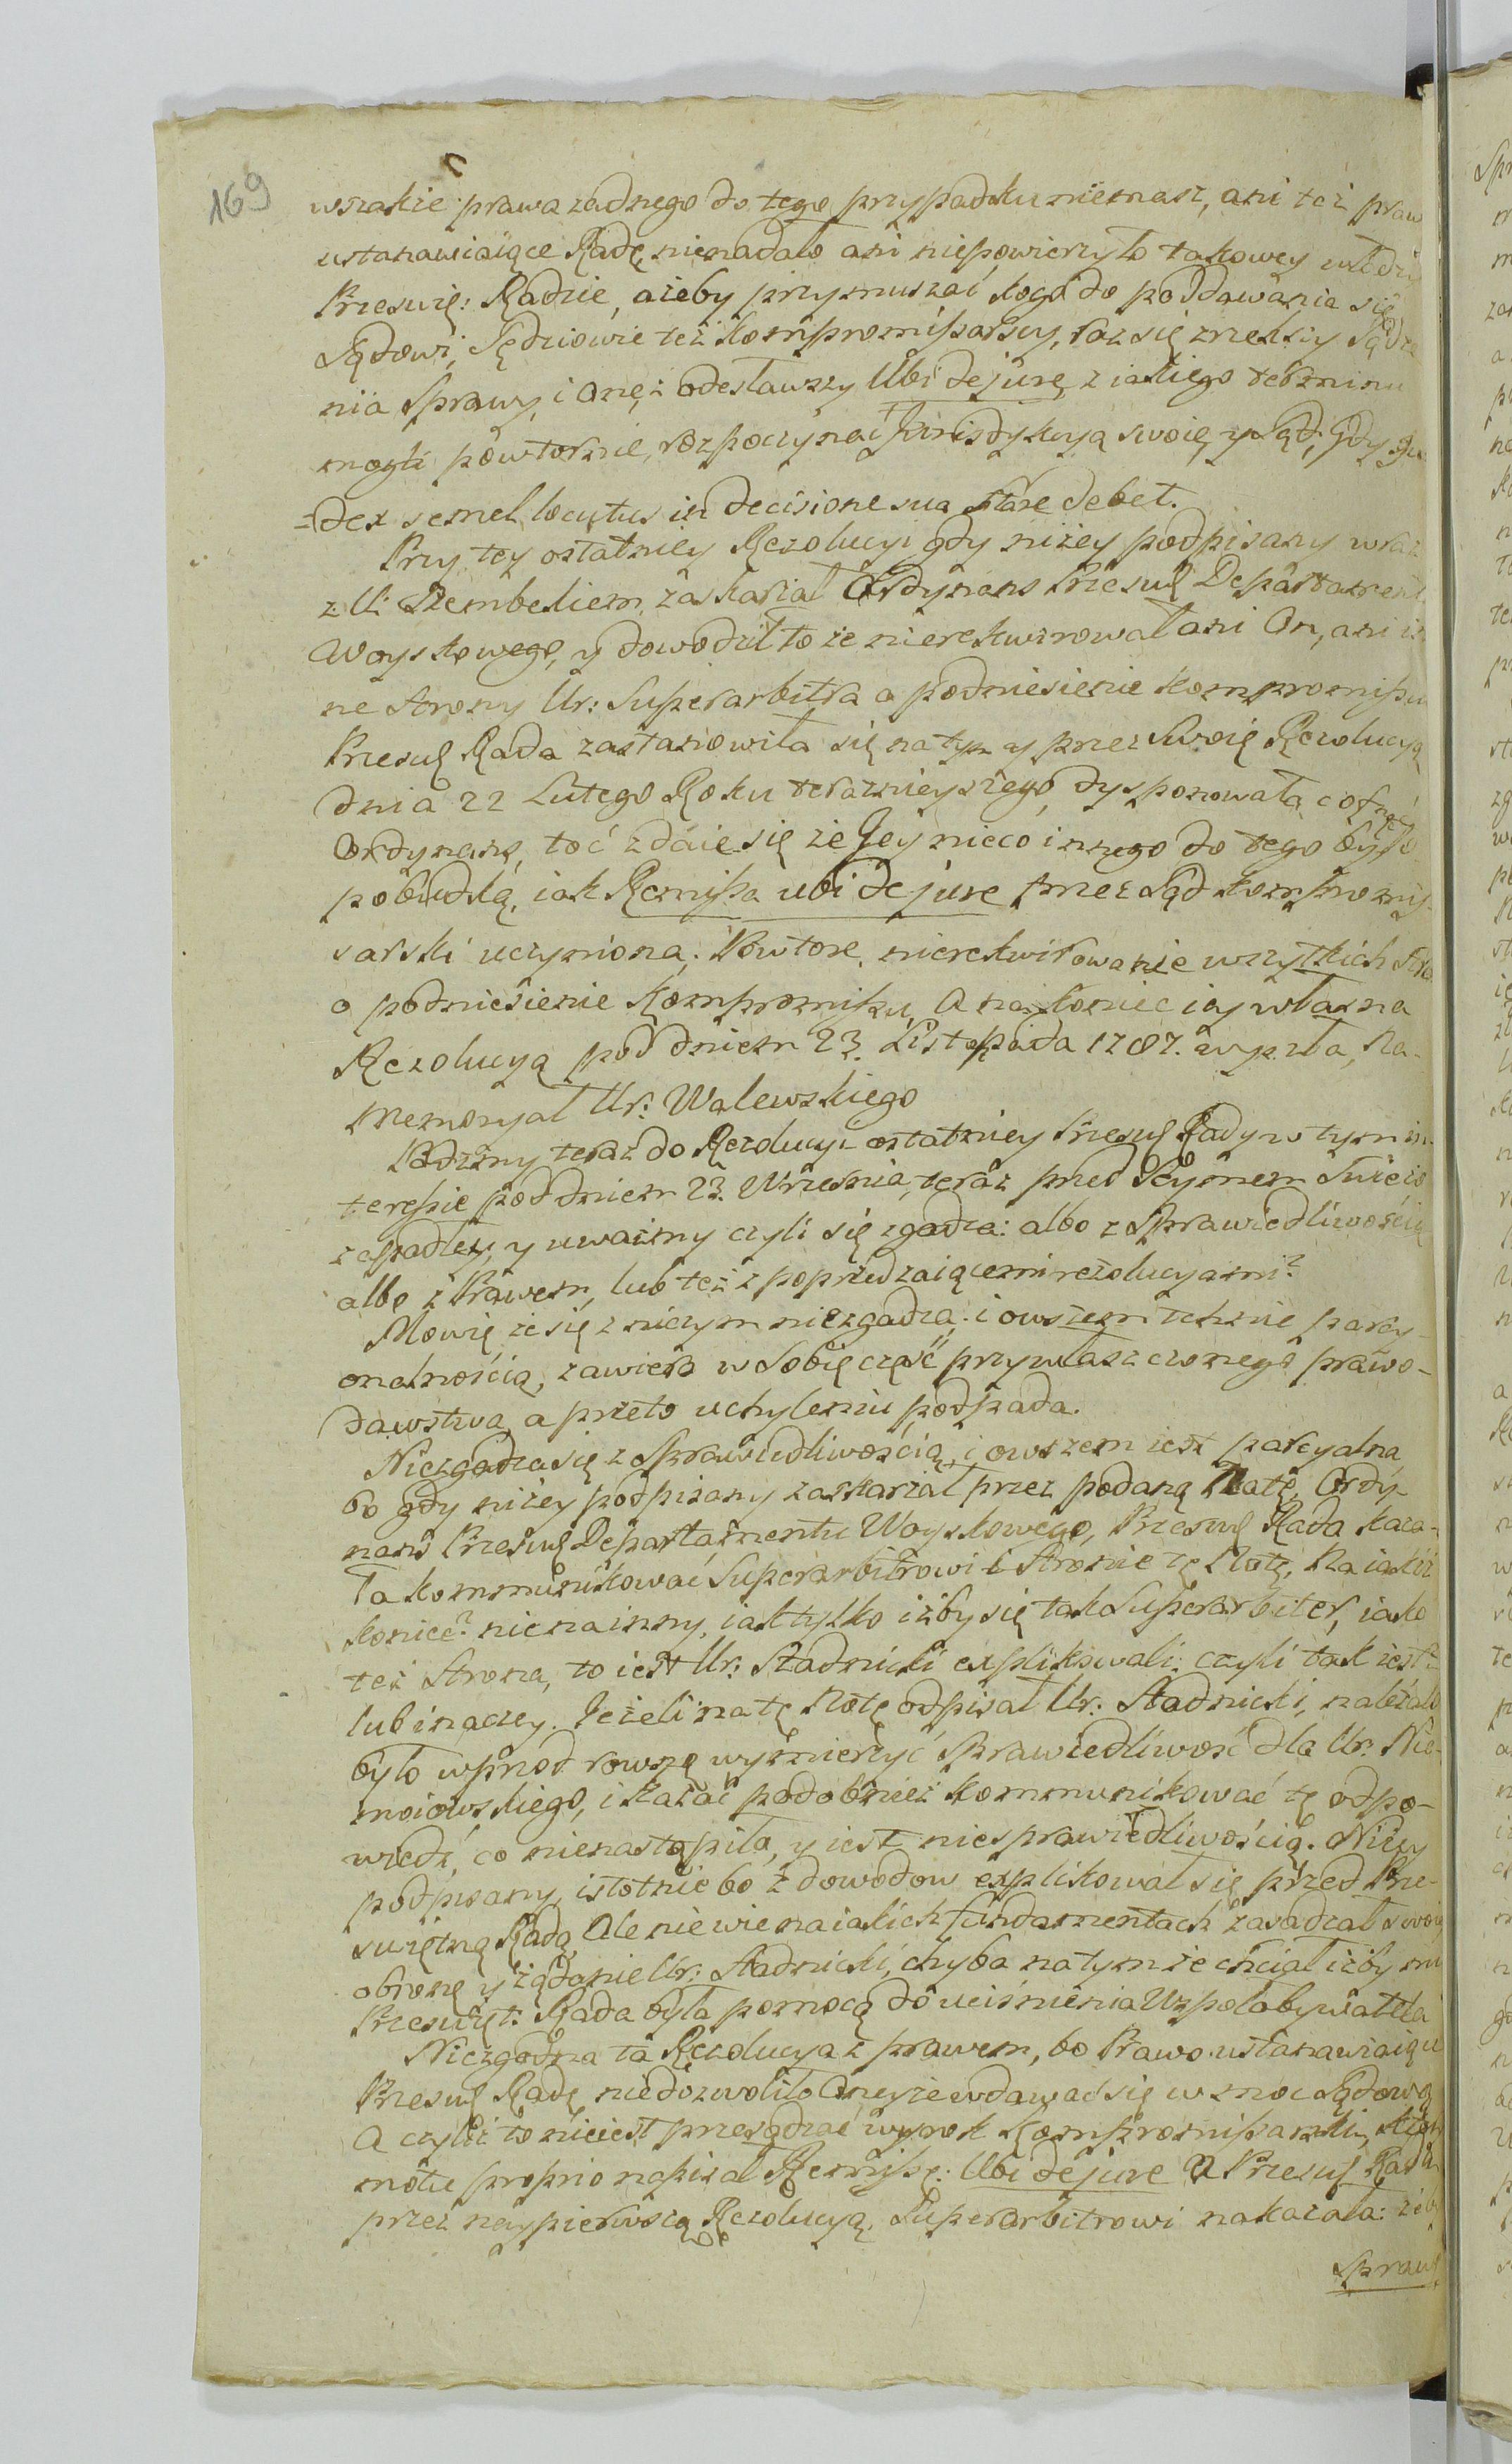 169
wszakże prawa żadnego do tego przypadku niemasz, ani też praw
ustanawiaiące Radę nienadało ani niepowierzyło takowey władzy
Przeswię: Radzie, ażeby przymuszać kogo do poddawania się
Sądowi, Sędziowie też kompromissarscy, raz się zrzekszy Sądze
nia Sprawy, i onęż odesławszy Ubi de jure, z iakiego terminu
mogli powtornie, rozpoczynać Jurisdykcyą swoię, y Sąd, gdy Ju
=dex semel locutus in decisione sua stare debet.
Przy tey ostatniey Rezolucyi gdy niżey podpisany wraz
z U: Szembekiem zaskarżał Ordynans Przesw: Departament
Woyskowego, y dowodził to że nierekwirował ani On, ani in
ne strony Ur: Superarbitra o podniesienie kompromissu
Przesw: Rada zastanowiła się na tym y przez Swoię Rezolucyą
dnia 22 Lutego Roku teraznieyszego, dysponowała cofnąć
Ordynans, toć zdaie się że Jey nieco inszego do tego było
pobudką, iak Remissa ubi de jure przez Sąd kompromis-
sarski uczyniona; Powtore, nierekwirowanie wszytkich stro
o podniesienie kompromissu, A na koniec iey własna
Rezolucyą pod dniem 23. Listopada 1787. wyszła, Na
Memoryał Ur: Walewskiego
Podźmy teraz do Rezolucyi ostatniey Przesw: Rady w tym in
teressie pod dniem 23. Września, teraz przed Seymem Swieżo
zapadłey, y uważmy czyli się zgadza: albo z Sprawiedliwością
albo z Prawem, lub też z poprzedzaiącemi rezolucyami?
Mowię że się z niczym niezgadza; i owszem tchnie parcy-
onalnością, zawiera w Sobie część przywłaszczonego prawo-
dawstwa, a przeto uchyleniu podpada.
Niezgadza się z Sprawiedliwością, i owszem iest parcyalna,
bo gdy niżey podpisany zaskarżał przez podaną Notę, Ordy-
nans Przesw: Departamentu Woyskowego, Przesw: Rada kaza-
ła kommunikować Superarbitrowi i Stronie tę Notę, Na iakiż
koniec? nie na inny, iak tylko iżby się tak Superarbiter, iako
też Strona, to iest Ur: Stadnicki explikowali: czyli tak iest
lub inaczey. Jeżeli na tę Notę odpisał Ur: Stadnicki, należało
było wprzod rowną wymierzyć Sprawiedliwość dla Ur: Nie-
moiowskiego, i kazać podobnież kommunikować tę odpo-
wiedź, co nienastąpiło, y iest niesprawiedliwością. Niżey
podpisany, istotnie bo z dowodow explikował się przed Prze-
swiętną Radą, Ale nie wie na iakich fundamentach zasadzał swoię
obronę y żądanie Ur: Stadnicki, chyba na tym że chciał iżby mu
Przeswięt: Rada była pomocą do ucismienia Wspołobywatela
Niezgodna ta Rezolucya z prawem, bo Prawo ustanawiaiące
Przesw: Radę niedozwoliło Oneyże wdawać się w moc Sądową
A czyliż to nieiest przesądzać wyrok kompromissarski, ktory
motu proprio napisał Remissę: Ubi de jure A Przesw: Rada
przez naypierwszą Rezolucyą, Superarbitrowi nakazała: żeby
Spraw